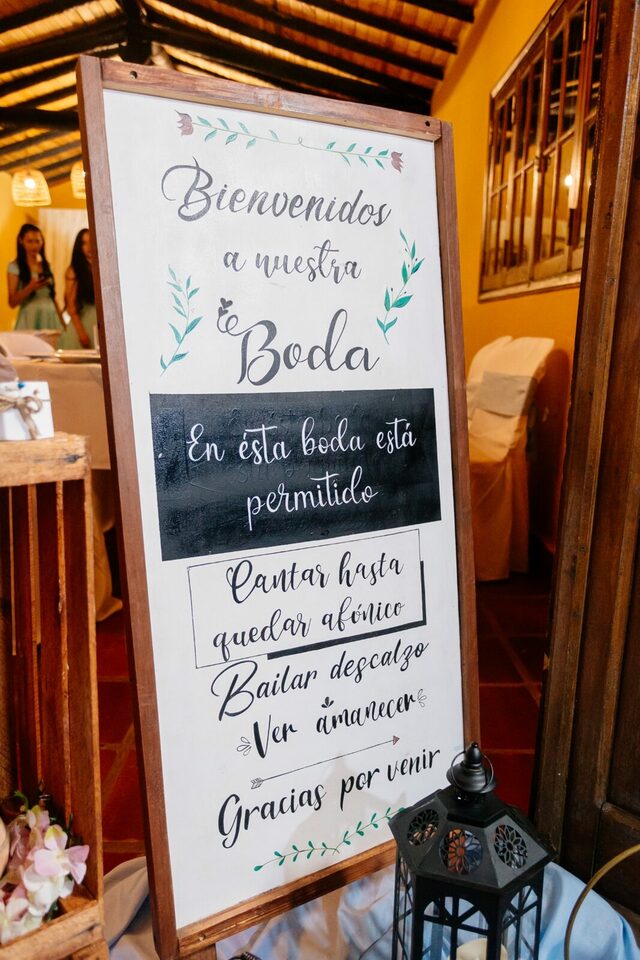 Bienvenidos
a nuestra
Boda
En ésta boda está
permitido
Cantar hasta
quedar afónico
Bailar descalzo
Ver amanecer
Gracias por venir